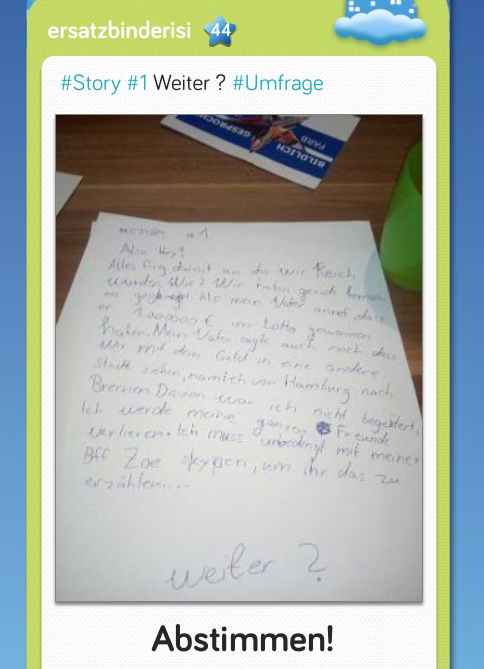 ersatzbinderisi 44
#Story #1 Weiter ? #Umfrage
BILDLICH GESPROCHEN
FARB
#STORY #1
Also Hey!
Alles fing damit an das wir Reich
wurden. Wie? Wir haben gerade
als mein Vater annef dass
er 1.000000 € im Lotto gewonnen
haben. Mein Vater sagte auch noch das
wir mit dem Geld in eine andere
Stadt ziehen, nämlich von Hamburg nach
Bremen Davon war ich nicht begeistert.
Ich werde meine ganzen Freunde
verlieren. Ich muss unbedingt mit meiner
Bff Zoe skypen, um ihr das zu
erzählen....
weiter ?
Abstimmen!